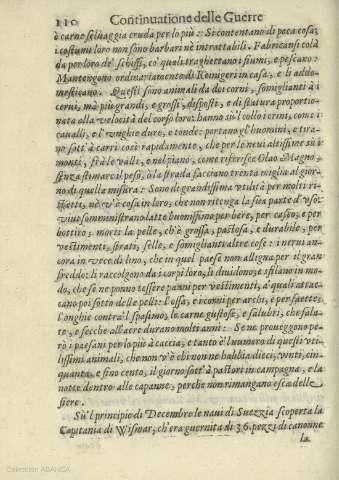 110 Continuatione delle Guerre
è carne seluaggia cruda per lo più: Si contentano di poca cosa;
i costumi loro non sono barbari nè intrattabili. Fabricansi colà
da per loro de' schiffi, co' quali traghettano i fiumi, e pescano:
Mantengono ordinariamente di Remigeri in casa, e li addo-
mesticano. Questi sono animali da doi corni, somiglianti à i
cerui, mà più grandi, e grossi, disposti, e di statura proportio-
nata alla velocità del corso loro: hanno sù'l collo i crini, come i
caualli, e l'vnghie dure, e tonde: portano gl'huomini, e tira-
no sott'à carri così rapidamente, che per le neui altissime sù i
monti, frà le valli, e nel piano, come riferisce Olao Magno,
senza stimarci il peso, ò la strada facciano trenta miglia al gior-
no di quella misura: Sono di grandissima vtilità per molti ri-
spetti, nè v'è cosa in loro, che non ritenga la sua parte d'vso:
viui somministrano latte buonissimo per bere, per cascio, e per
bottiro: morti la pelle, ch'è grossa, pastosa, e durabile, per
vestimenti, strato, selle, e somiglianti altre cose: i nerui an-
cora in vece di lino, che in quel paese non alligna per il gran
freddo: li raccolgono da i corpi loro, li diuidono, e sfilano in mo-
do, che se ne ponno tessere panni per vestimenti, à quali attac-
cano poi sotto delle pelli: l'ossa, e i corni per archi, e per saette:
l'onghie contra'l spasimo, le carne gustose, e salubri, che sala-
te, e secche all'aere durano molti anni: Se ne proueggono pe-
rò i paesani per lo più à caccia, e tanto è'l numero di questi vti-
lissimi animali, che non v'è chi non ne habbia dieci, vinti, cin-
quanta, e fino cento, il giorno sott'à pastori in campagna, e la
notte dentro alle capanne, perche non rimangano esca delle
fiere.
Sù'l principio di Decembre le naui di Suezzia scoperta la
Capitania di Wismar, ch'era guernita di 36. pezzi di cannone
la
Colección ABANCA